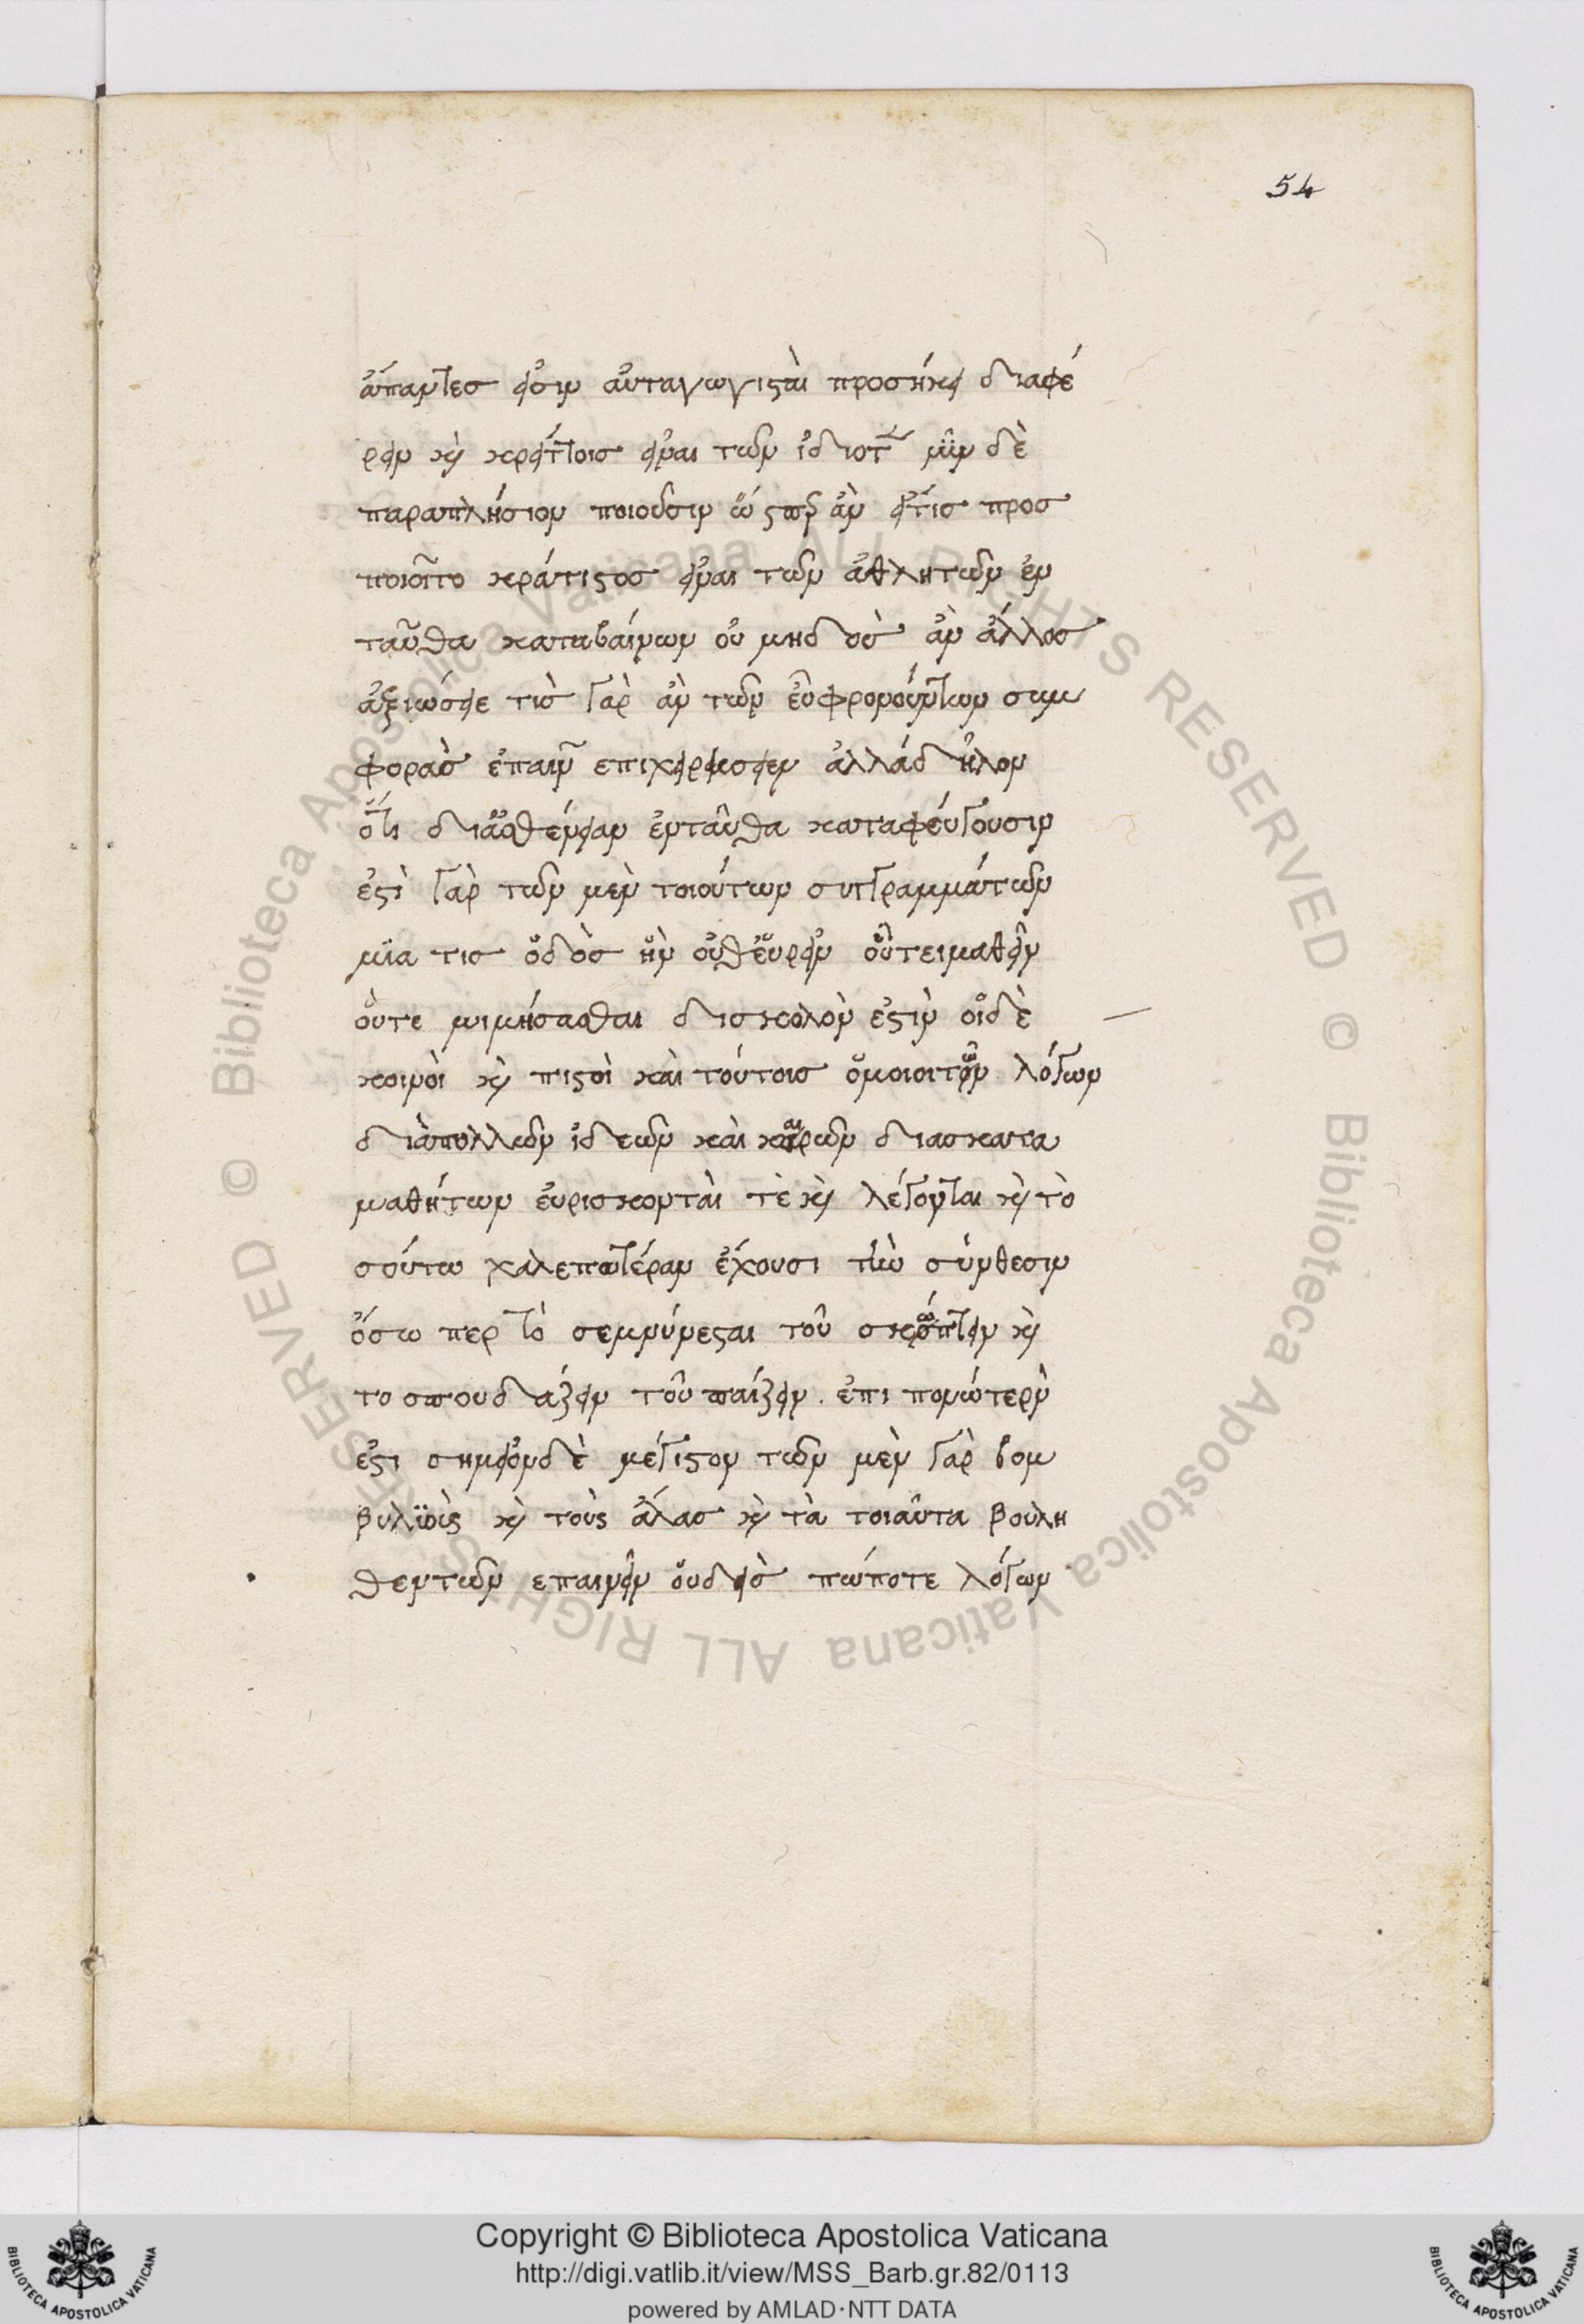 54
ἅπαντες εἰσιν ἀνταγωνισταὶ προσήκει διαφέ
ρειν καὶ κρείττοις εἶναι τῶν ἰδιοτῶν νῦν δὲ
παραπλήσιον ποιοῦσιν ὥσπερ ἂν εἴτις προσ
ποιοῖτο κράτιστος εἶναι τῶν ἀθλητῶν ἐν
ταῦθα καταβαίνων οὗ μηδεὶς ἂν ἄλλος
ἀξιώσειε τὶς γὰρ ἂν τῶν εὖ φρονούντων συμ
φορὰς ἐπαινεῖν επιχειρήσειεν ἀλλὰ δῆλον
ὅτι δι ἀσθένειαν ἐνταῦθα καταφεύγουσιν
ἐστὶ γὰρ τῶν μὲν τοιούτων συγγραμμάτων
μϊα τις ὅδὸς ἣν οὔθ εὕρεῖν οὔτε μαθεῖν
οὔτε μιμήσασθαι δισκολὸν ἐστὶν οἱ δὲ
κοινοὶ καὶ πιστοὶ καὶ τούτοις ὅμοιοι τῶν λόγων
διὰ πολλῶν ἰδεῶν καὶ καιρῶν δισκατα
μαθήτων εὑρισκονταὶ τὲ καὶ λέγονται καὶ το
σούτω χαλεπωτέραν ἔχουσι τὴν σύνθεσιν
ὅσω περ τὸ σεμνύνεσται τοῦ σκώπτειν καὶ
το σπουδιάζειν τοῦ παίζειν . ἐπι πονώτερὸν
ἐστι σημεῖον δὲ μέγιστον τῶν μὲν γὰρ βομ
βυλϊοὺς καὶ τοὺς ἅλας καὶ τὰ τοιαῦτα βουλη
θεντων επαινεῖν οὔδεὶς πώποτε λόγων
Copyright © Biblioteca Apostolica Vaticana
http://digi.vatlib.it/view/MSS_Barb.gr.82/0113
powered by AMLAD·NTT DATA
BIBLIOTECA APOSTOLICA VATICANA
BIBLIOTECA APOSTOLICA VATICANA
© Biblioteca Apostolica Vaticana ALL RIGHTS RESERVED © Biblioteca Apostolica Vaticana ALL RIGHTS RESERVED